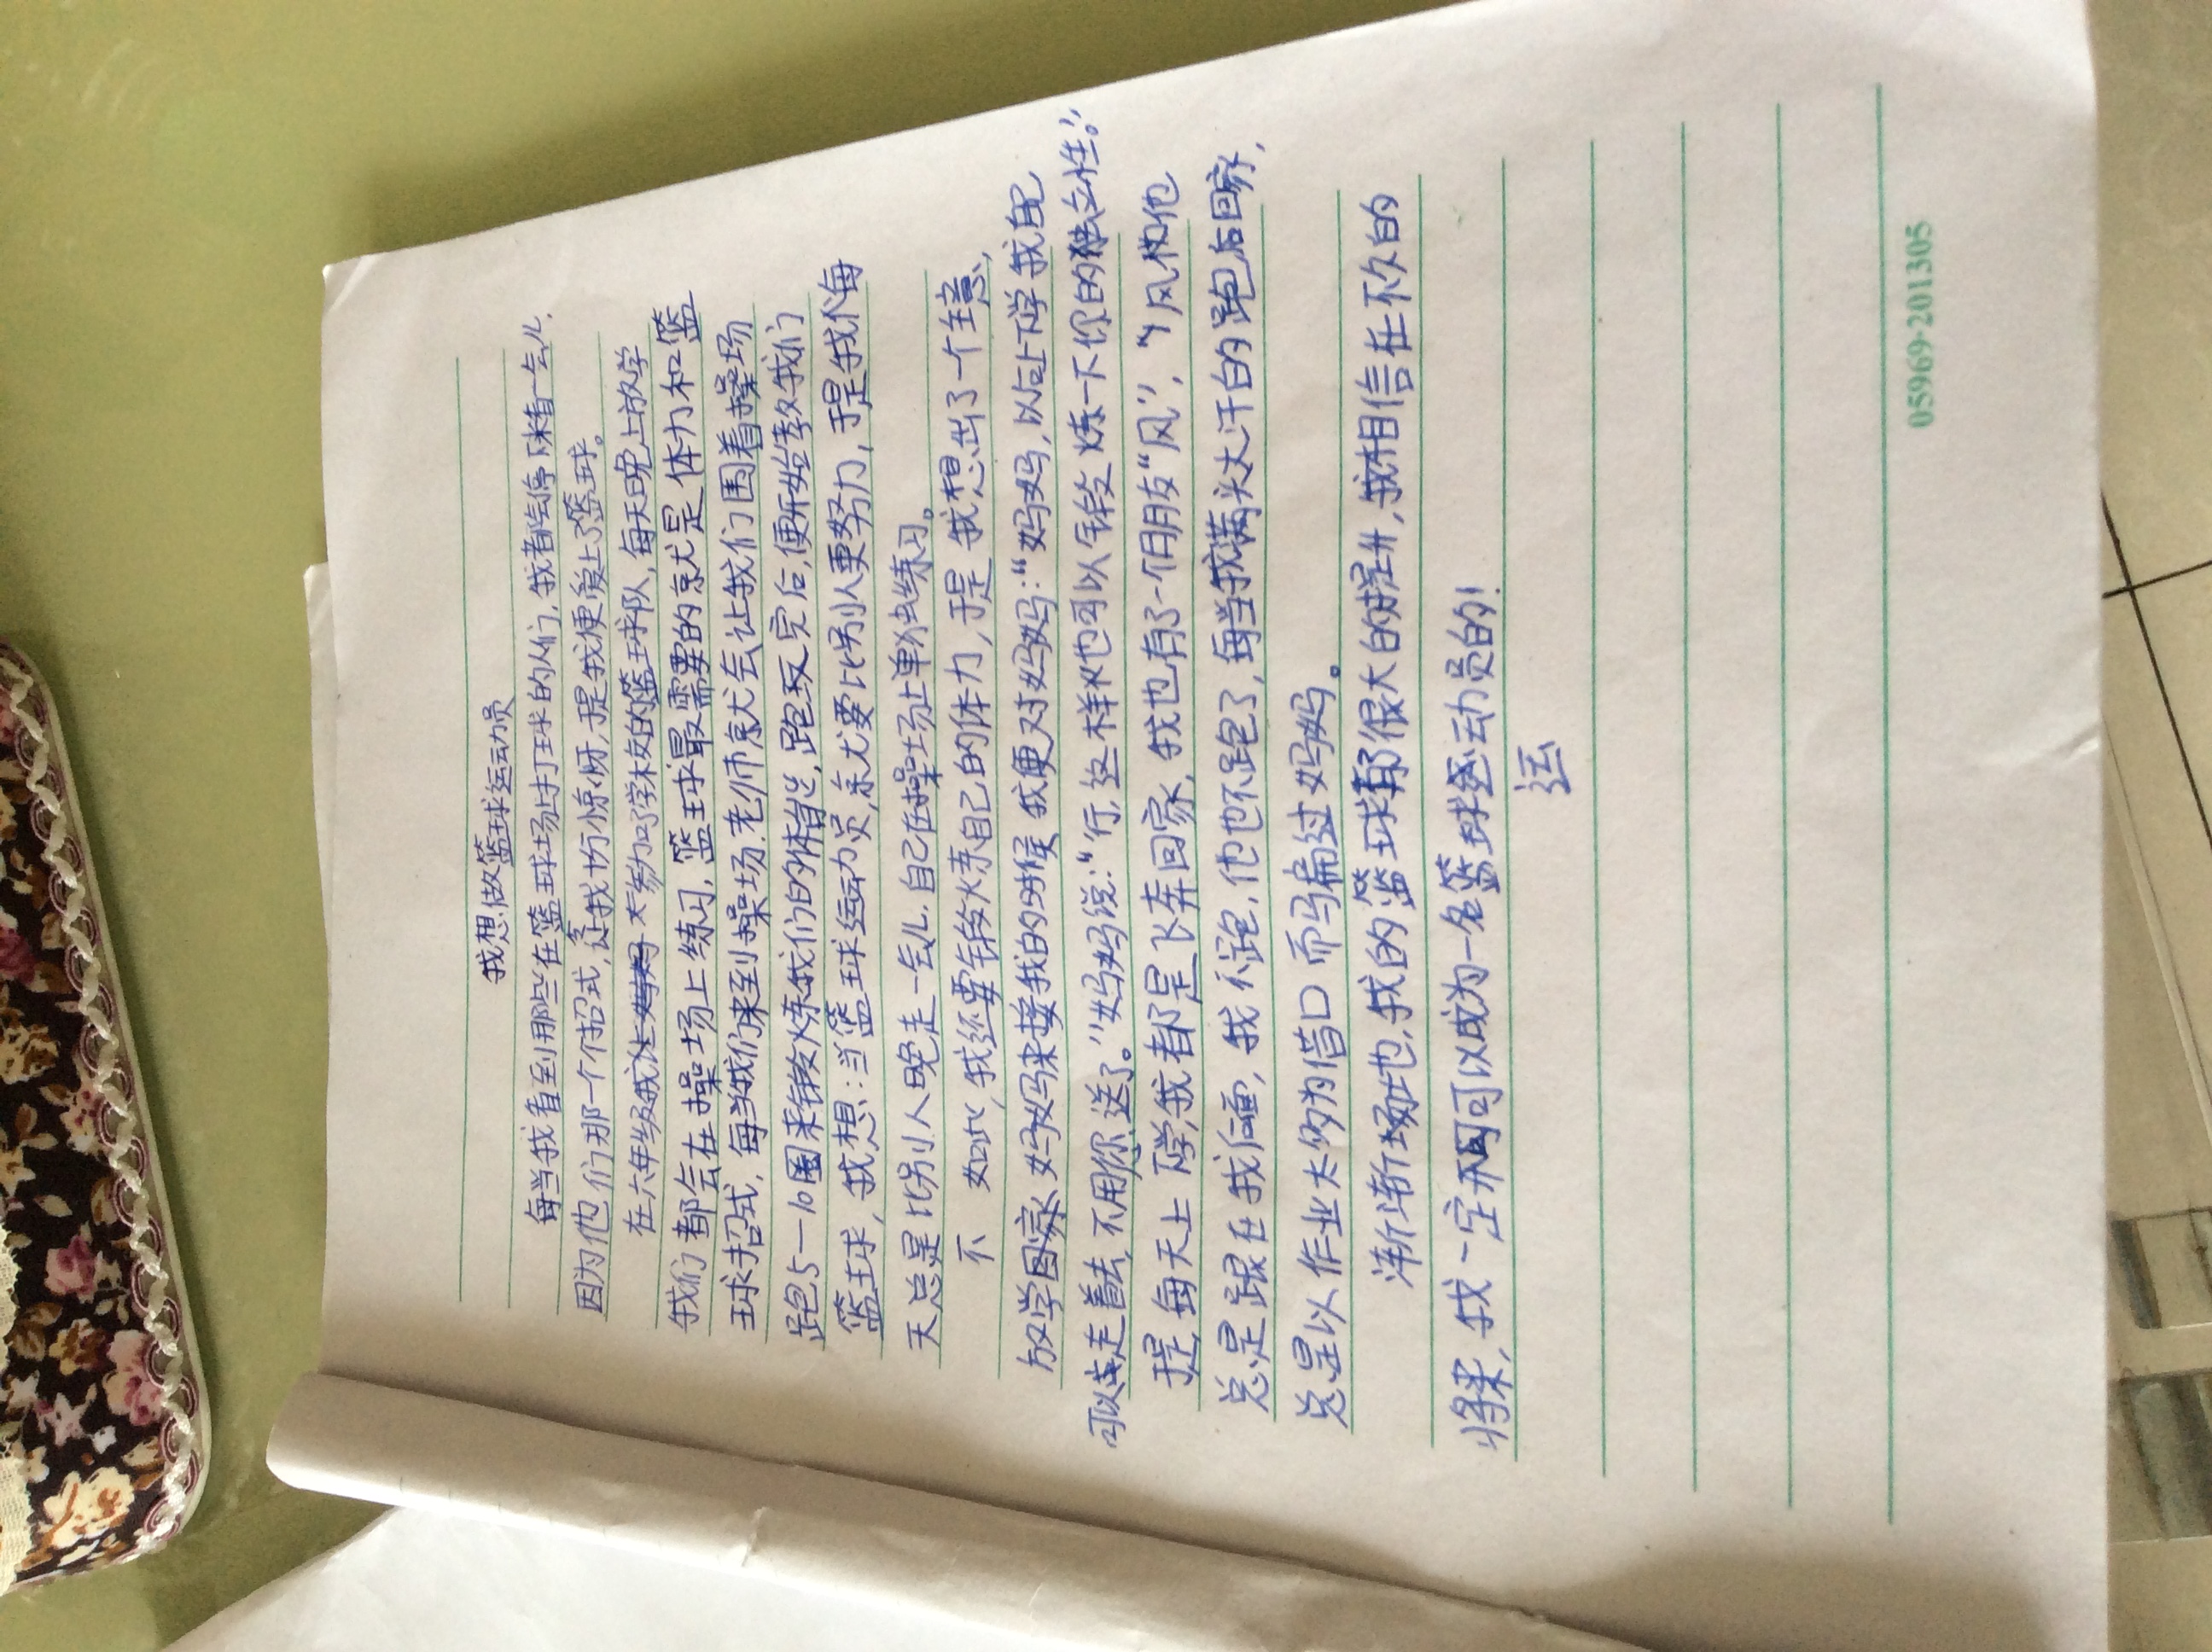 我想做篮球运动员
每当我看到那些在篮球场上打球的人们,我都会停下来看一会儿.
因为他们那一个个招式,令我十分惊讶,于是我便爱上了篮球。
在六年级我参加了学校的篮球队,每天晚上放学
我们都会在操场上练习,篮球最需要的就是体力和篮
球招式,每当我们来到操场.老师就会让我们围着操场
跑5—10圈来锻炼我们的体能,跑完后,便开始教我们
篮球,我想:当篮球运动员,就要比别人更努力,于是我每
天总是比别人晚走一会儿.自己在操场上单独练习。
不 如此,我还要锻炼自己的体力,于是我想出了个主意,
放学回家妈妈来接我的时候我便对妈妈:“妈妈,以后上下学我自己
可以走着去,不用你送了。”妈妈说:“行,这样也可以锻炼一下你的独立性.”
于是,每天上下学,我都是飞奔回家,我也有了一个朋友“风”,风他
总是跟在我后面,我不跑,他也不跑了,每当我满头大汗的跑后回家,
总是以作业太多为借口而骗过妈妈。
渐渐地,我的篮球有很大的提升,我相信在不久的
将来,我一定可以成为一名篮球运动员的!
运
05969-201305